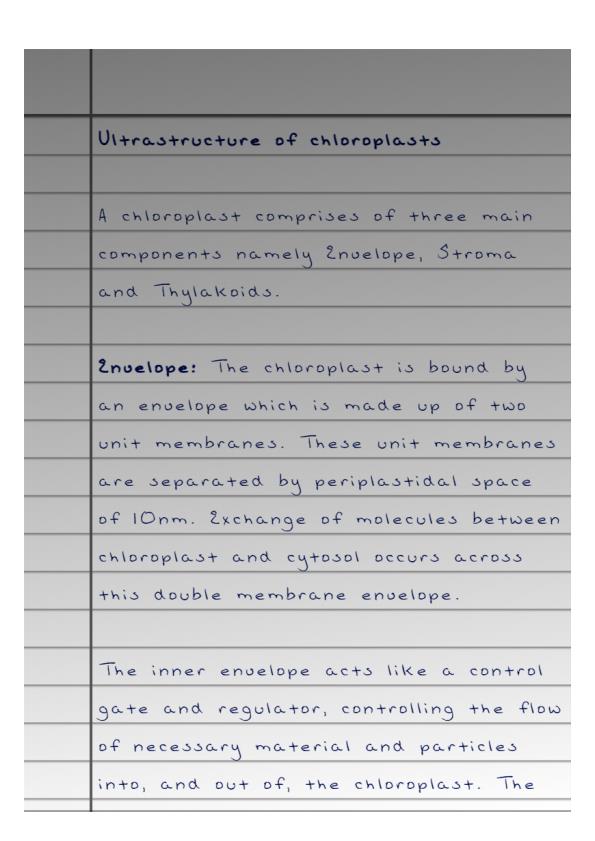 Ultrastructure of chloroplasts
A chloroplast comprises of three main
components namely Envelope, Stroma
and Thylakoids.
Envelope: The chloroplast is bound by
an envelope which is made up of two
unit membranes. These unit membranes
are separated by periplastidal space
of 10nm. Exchange of molecules between
chloroplast and cytosol occurs across
this double membrane envelope.
The inner envelope acts like a control
gate and regulator, controlling the flow
of necessary material and particles
into, and out of, the chloroplast. The